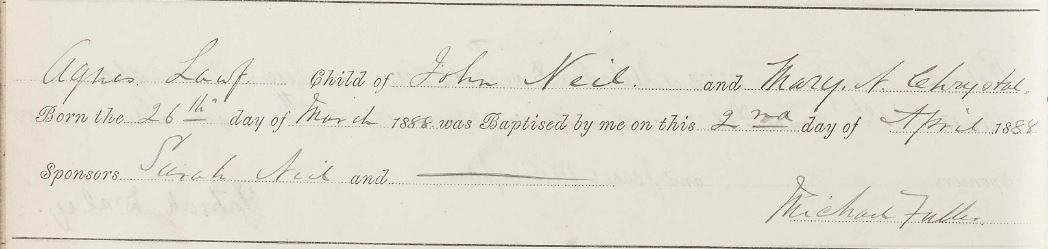 Agnes Lawf. Child of John Neil. and Mary. N. Chrystal.
Born the 26th day of March 1888 was Baptised by me on this 2nd day of April 1888
Sponsors Sarah Neil and
Michael Fuller.